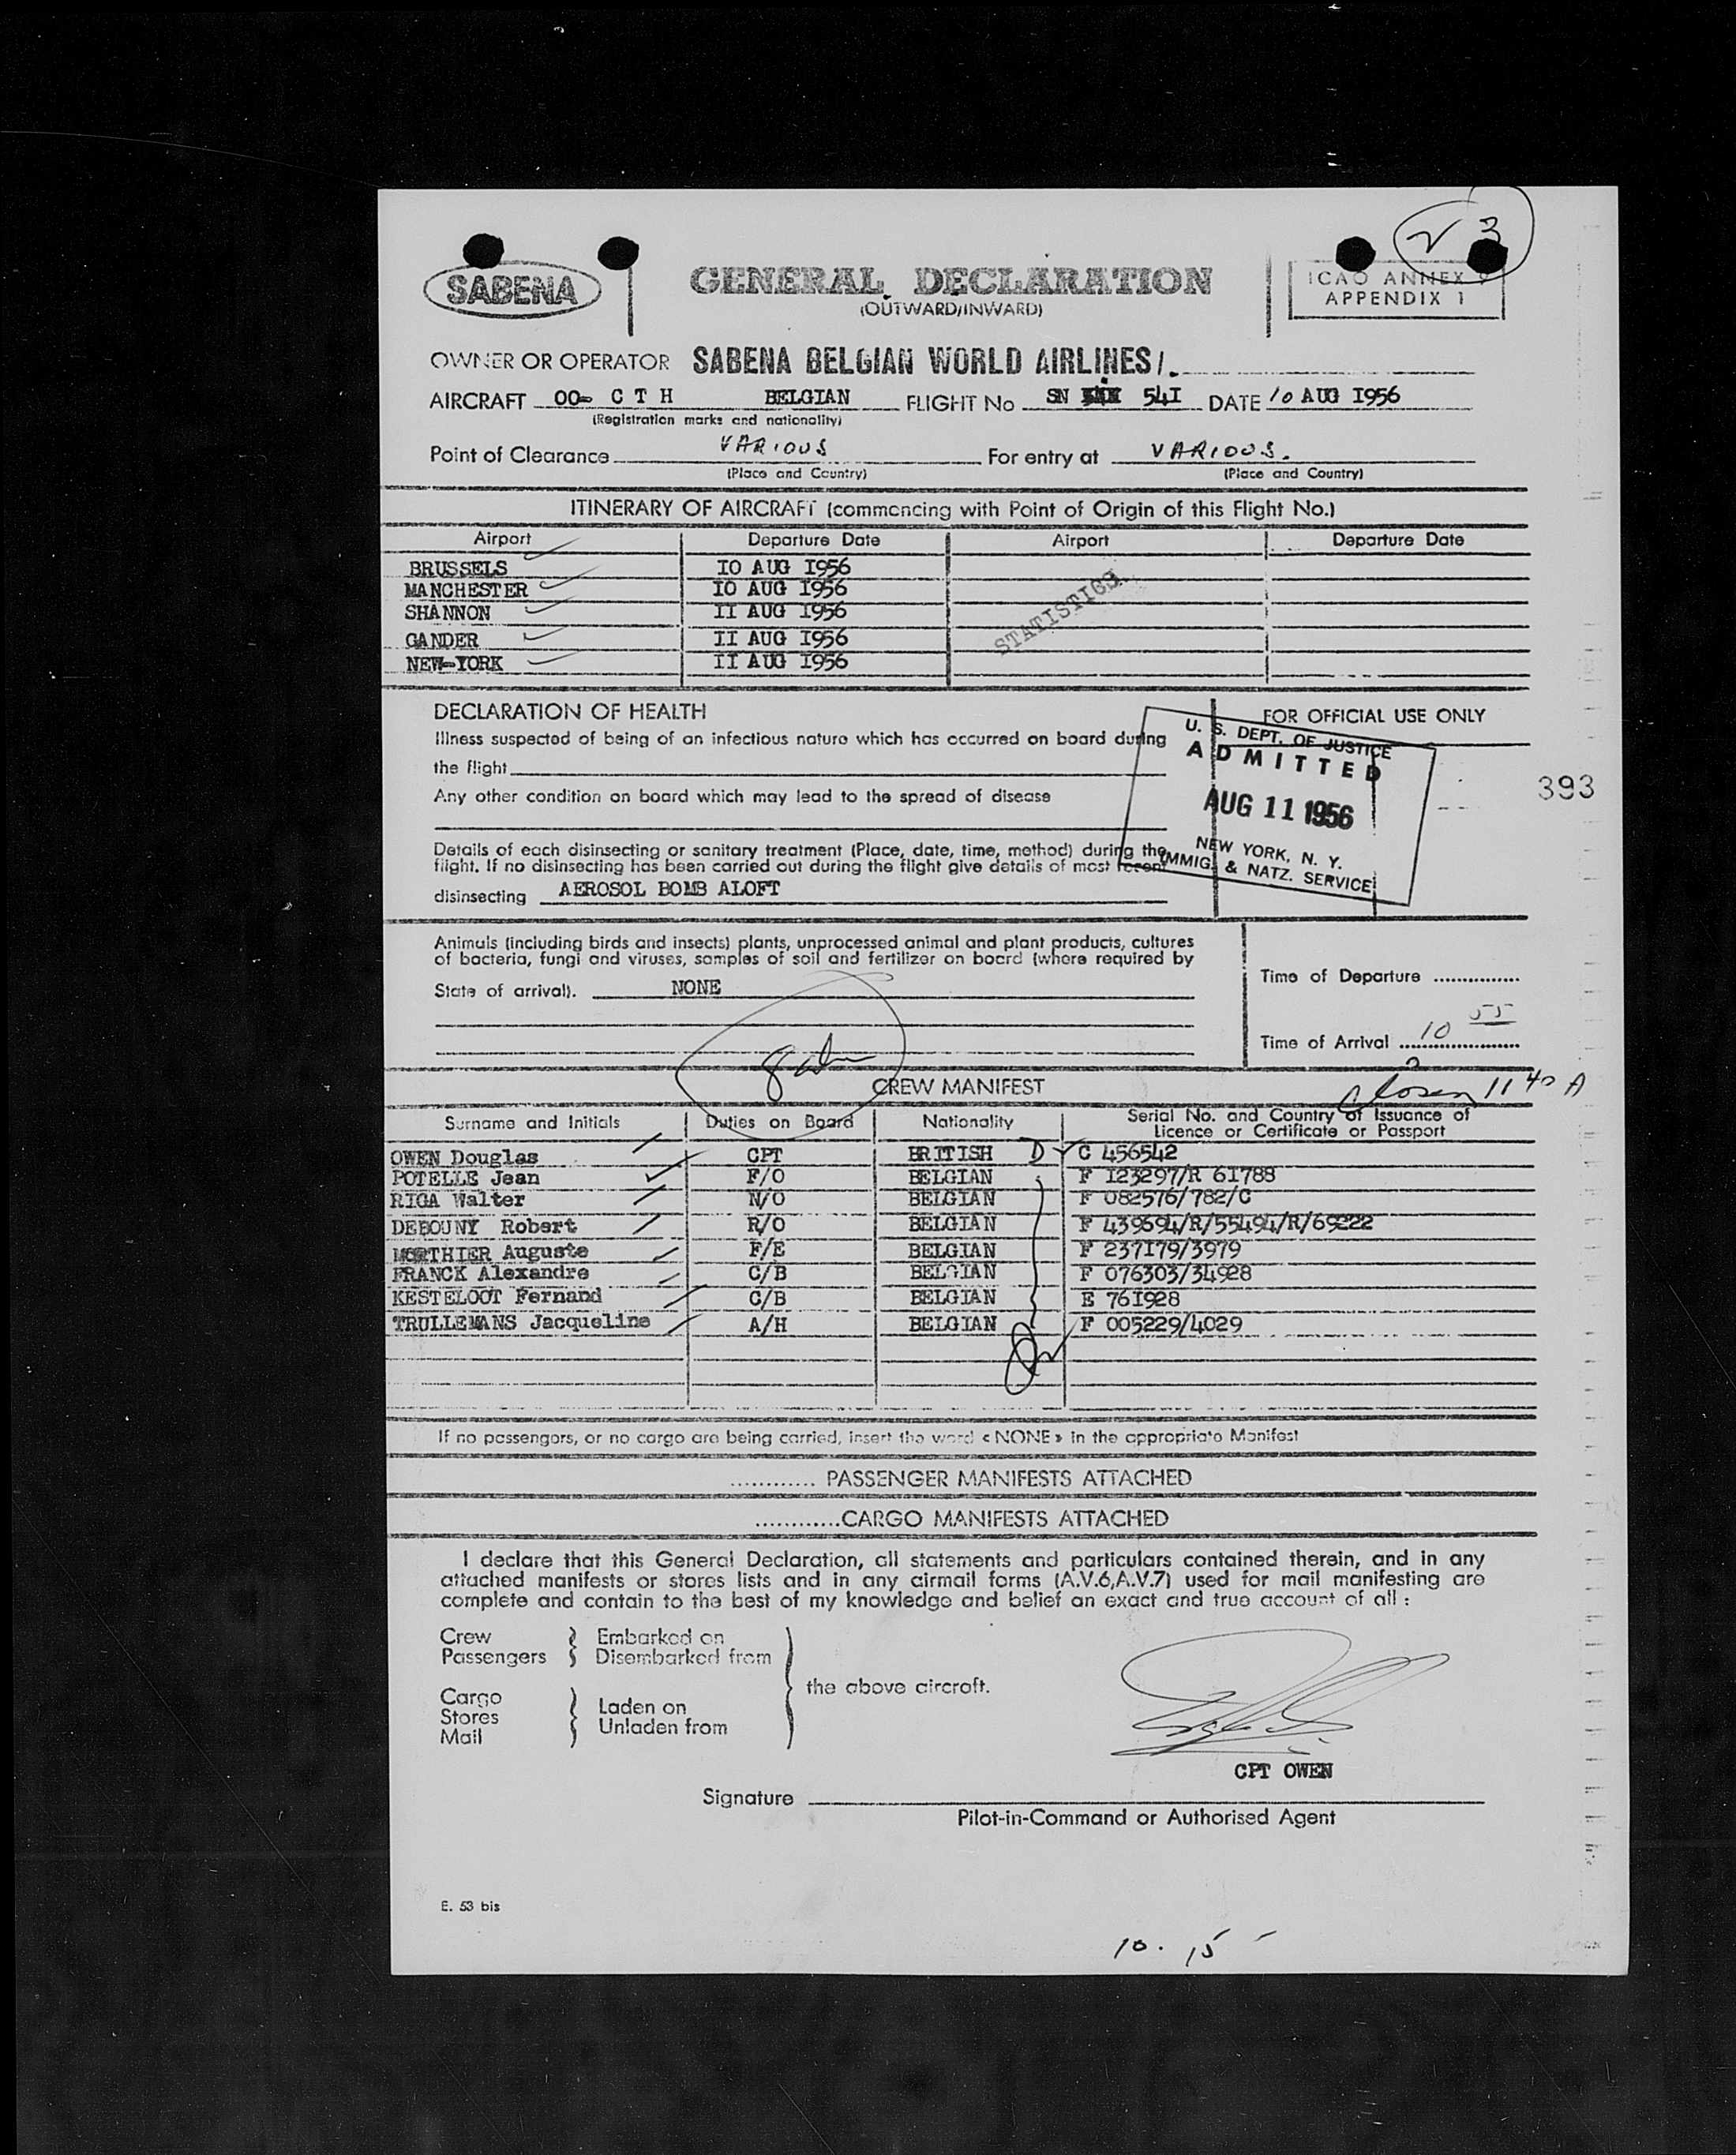 3
SABENA
GENERAL DECLARATION
(OUTWARD/INWARD)
ICAO ANNEX 9
APPENDIX 1
OWNER OR OPERATOR SABENA BELGIAN WORLD AIRLINES/.
AIRCRAFT OO- C T H BELGIAN FLIGHT No SN 54I DATE 10 AUG I956
(Registration marks and nationality)
Point of Clearance VARIOUS For entry at VARIOUS.
(Place and Country) (Place and Country)
ITINERARY OF AIRCRAFT (commencing with Point of Origin of this Flight No.)
Airport Departure Date Airport Departure Date
BRUSSELS IO AUG I956
MANCHESTER IO AUG I956
SHANNON II AUG I956
GANDER II AUG I956
NEW-YORK II AUG I956
STATISTICS
DECLARATION OF HEALTH FOR OFFICIAL USE ONLY
Illness suspected of being of an infectious nature which has occurred on board during
the flight
Any other condition on board which may lead to the spread of disease
Details of each disinsecting or sanitary treatment (Place, date, time, method) during the
flight. If no disinsecting has been carried out during the flight give details of most recent
disinsecting AEROSOL BOMB ALOFT
U. S. DEPT. OF JUSTICE
ADMITTED
AUG 11 1956
NEW YORK, N. Y.
IMMIG. & NATZ. SERVICE
393
Animals (including birds and insects) plants, unprocessed animal and plant products, cultures
of bacteria, fungi and viruses, samples of soil and fertilizer on board (where required by
State of arrival). NONE
Time of Departure ..............
Time of Arrival 10 55
CREW MANIFEST
11 40 A
Surname and Initials Duties on Board Nationality Serial No. and Country of Issuance of
Licence or Certificate or Passport
OWEN Douglas CPT BRITISH D C 456542
POTELLE Jean F/O BELGIAN F I23297/R 6I788
RIGA Walter N/O BELGIAN F 082576/782/C
DEBOUNY Robert R/O BELGIAN F 439694/R/55494/R/69222
MORTHIER Auguste F/E BELGIAN F 237I79/3979
FRANCK Alexandre C/B BELGIAN F 076303/34928
KESTELOOT Fernand C/B BELGIAN E 76I928
TRULLEMANS Jacqueline A/H BELGIAN F 005229/4029
If no passengers, or no cargo are being carried, insert the word « NONE » in the appropriate Manifest
............ PASSENGER MANIFESTS ATTACHED
............CARGO MANIFESTS ATTACHED
I declare that this General Declaration, all statements and particulars contained therein, and in any
attached manifests or stores lists and in any airmail forms (A.V.6,A.V.7) used for mail manifesting are
complete and contain to the best of my knowledge and belief an exact and true account of all :
Crew Embarked on
Passengers Disembarked from
the above aircraft.
Cargo
Stores Laden on
Mail Unladen from
CPT OWEN
Signature
Pilot-in-Command or Authorised Agent
E. 53 bis
10. 15